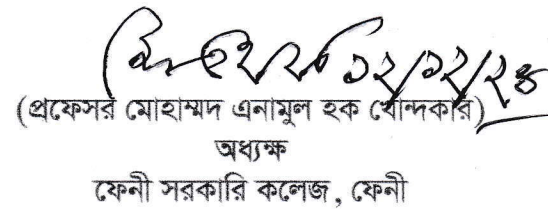 ১২/১২/২৪
(প্রফেসর মোহাম্মদ এনামুল হক খোন্দকার)
অধ্যক্ষ
ফেনী সরকারি কলেজ, ফেনী